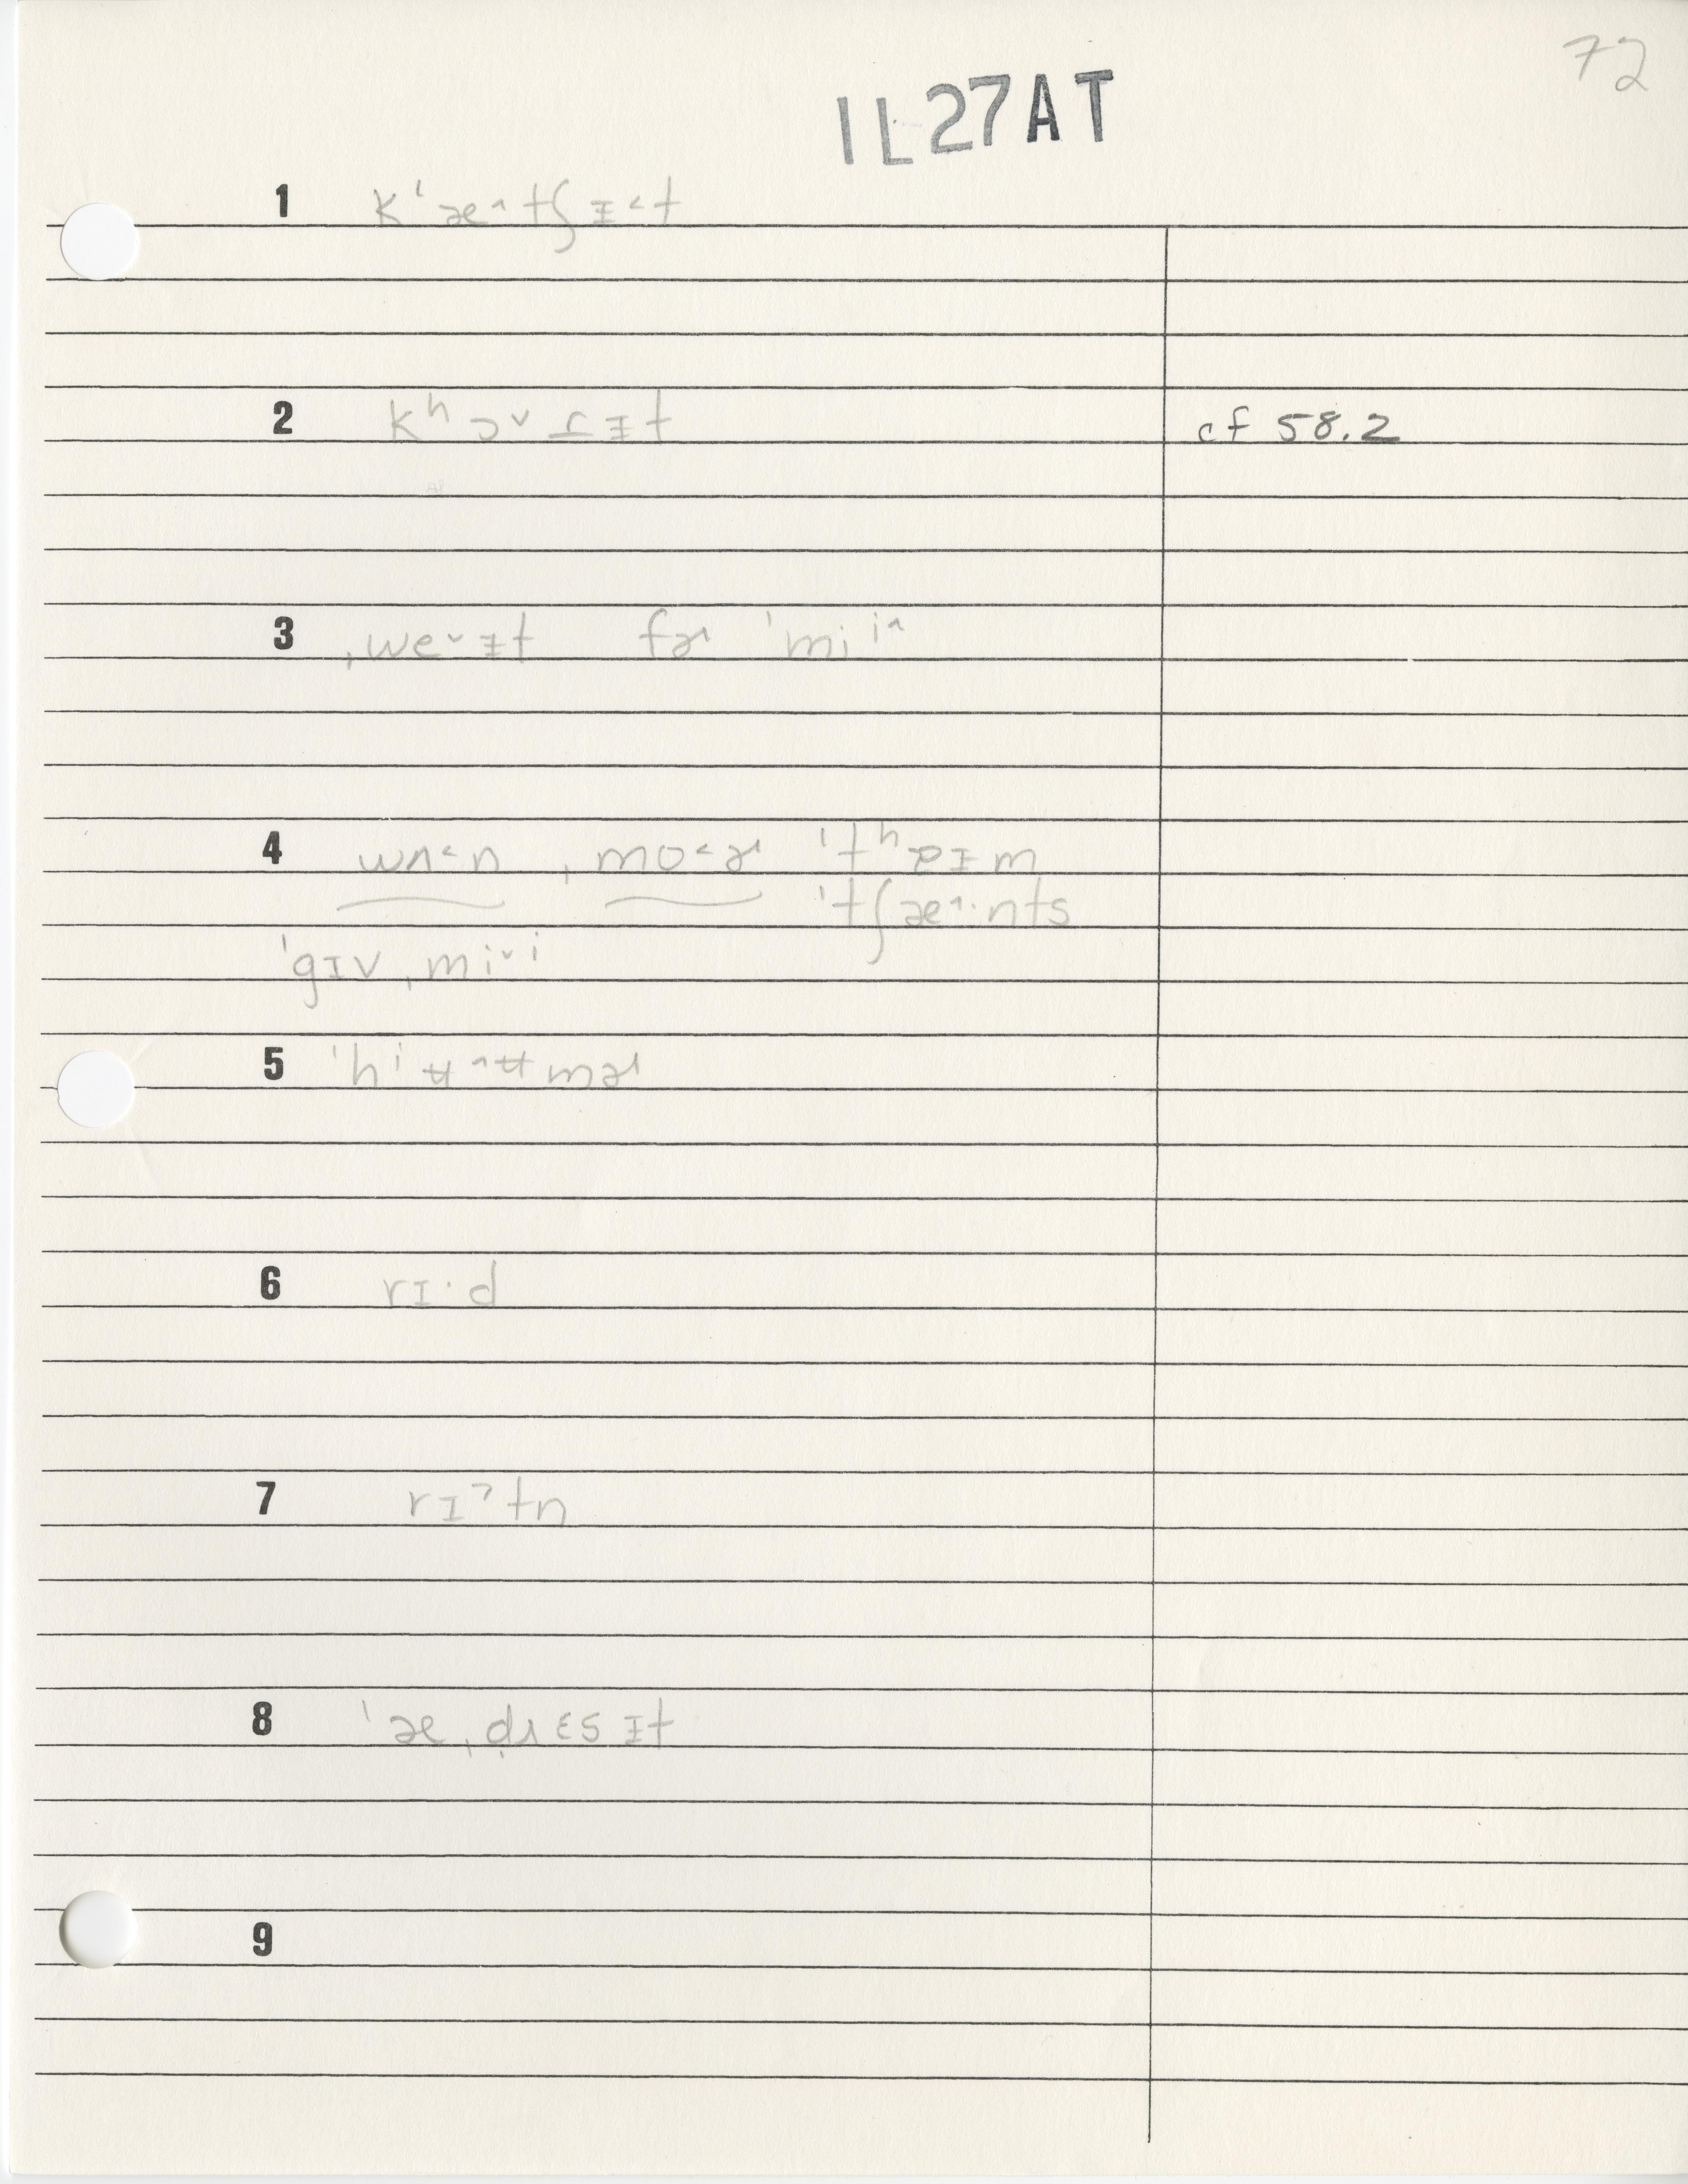 72
IL27AT
1 kʻæ^tʃɪ˂t
2 kʰɔ˅ɾɪt
cf 58.2
3 ˌwe˅ɪt fɚ ˈmii^
4 wʌ˂n ˌmo˂ɚ ˈtʰɐɪm
ˈtʃæ^·nts
ˈgɪv ˌmi˅i
5 ˈhiʉ^ʉmɚ
6 rɪ·d
7 rɪ˃tn
8 ˈæˌdɹɛsɪt
9